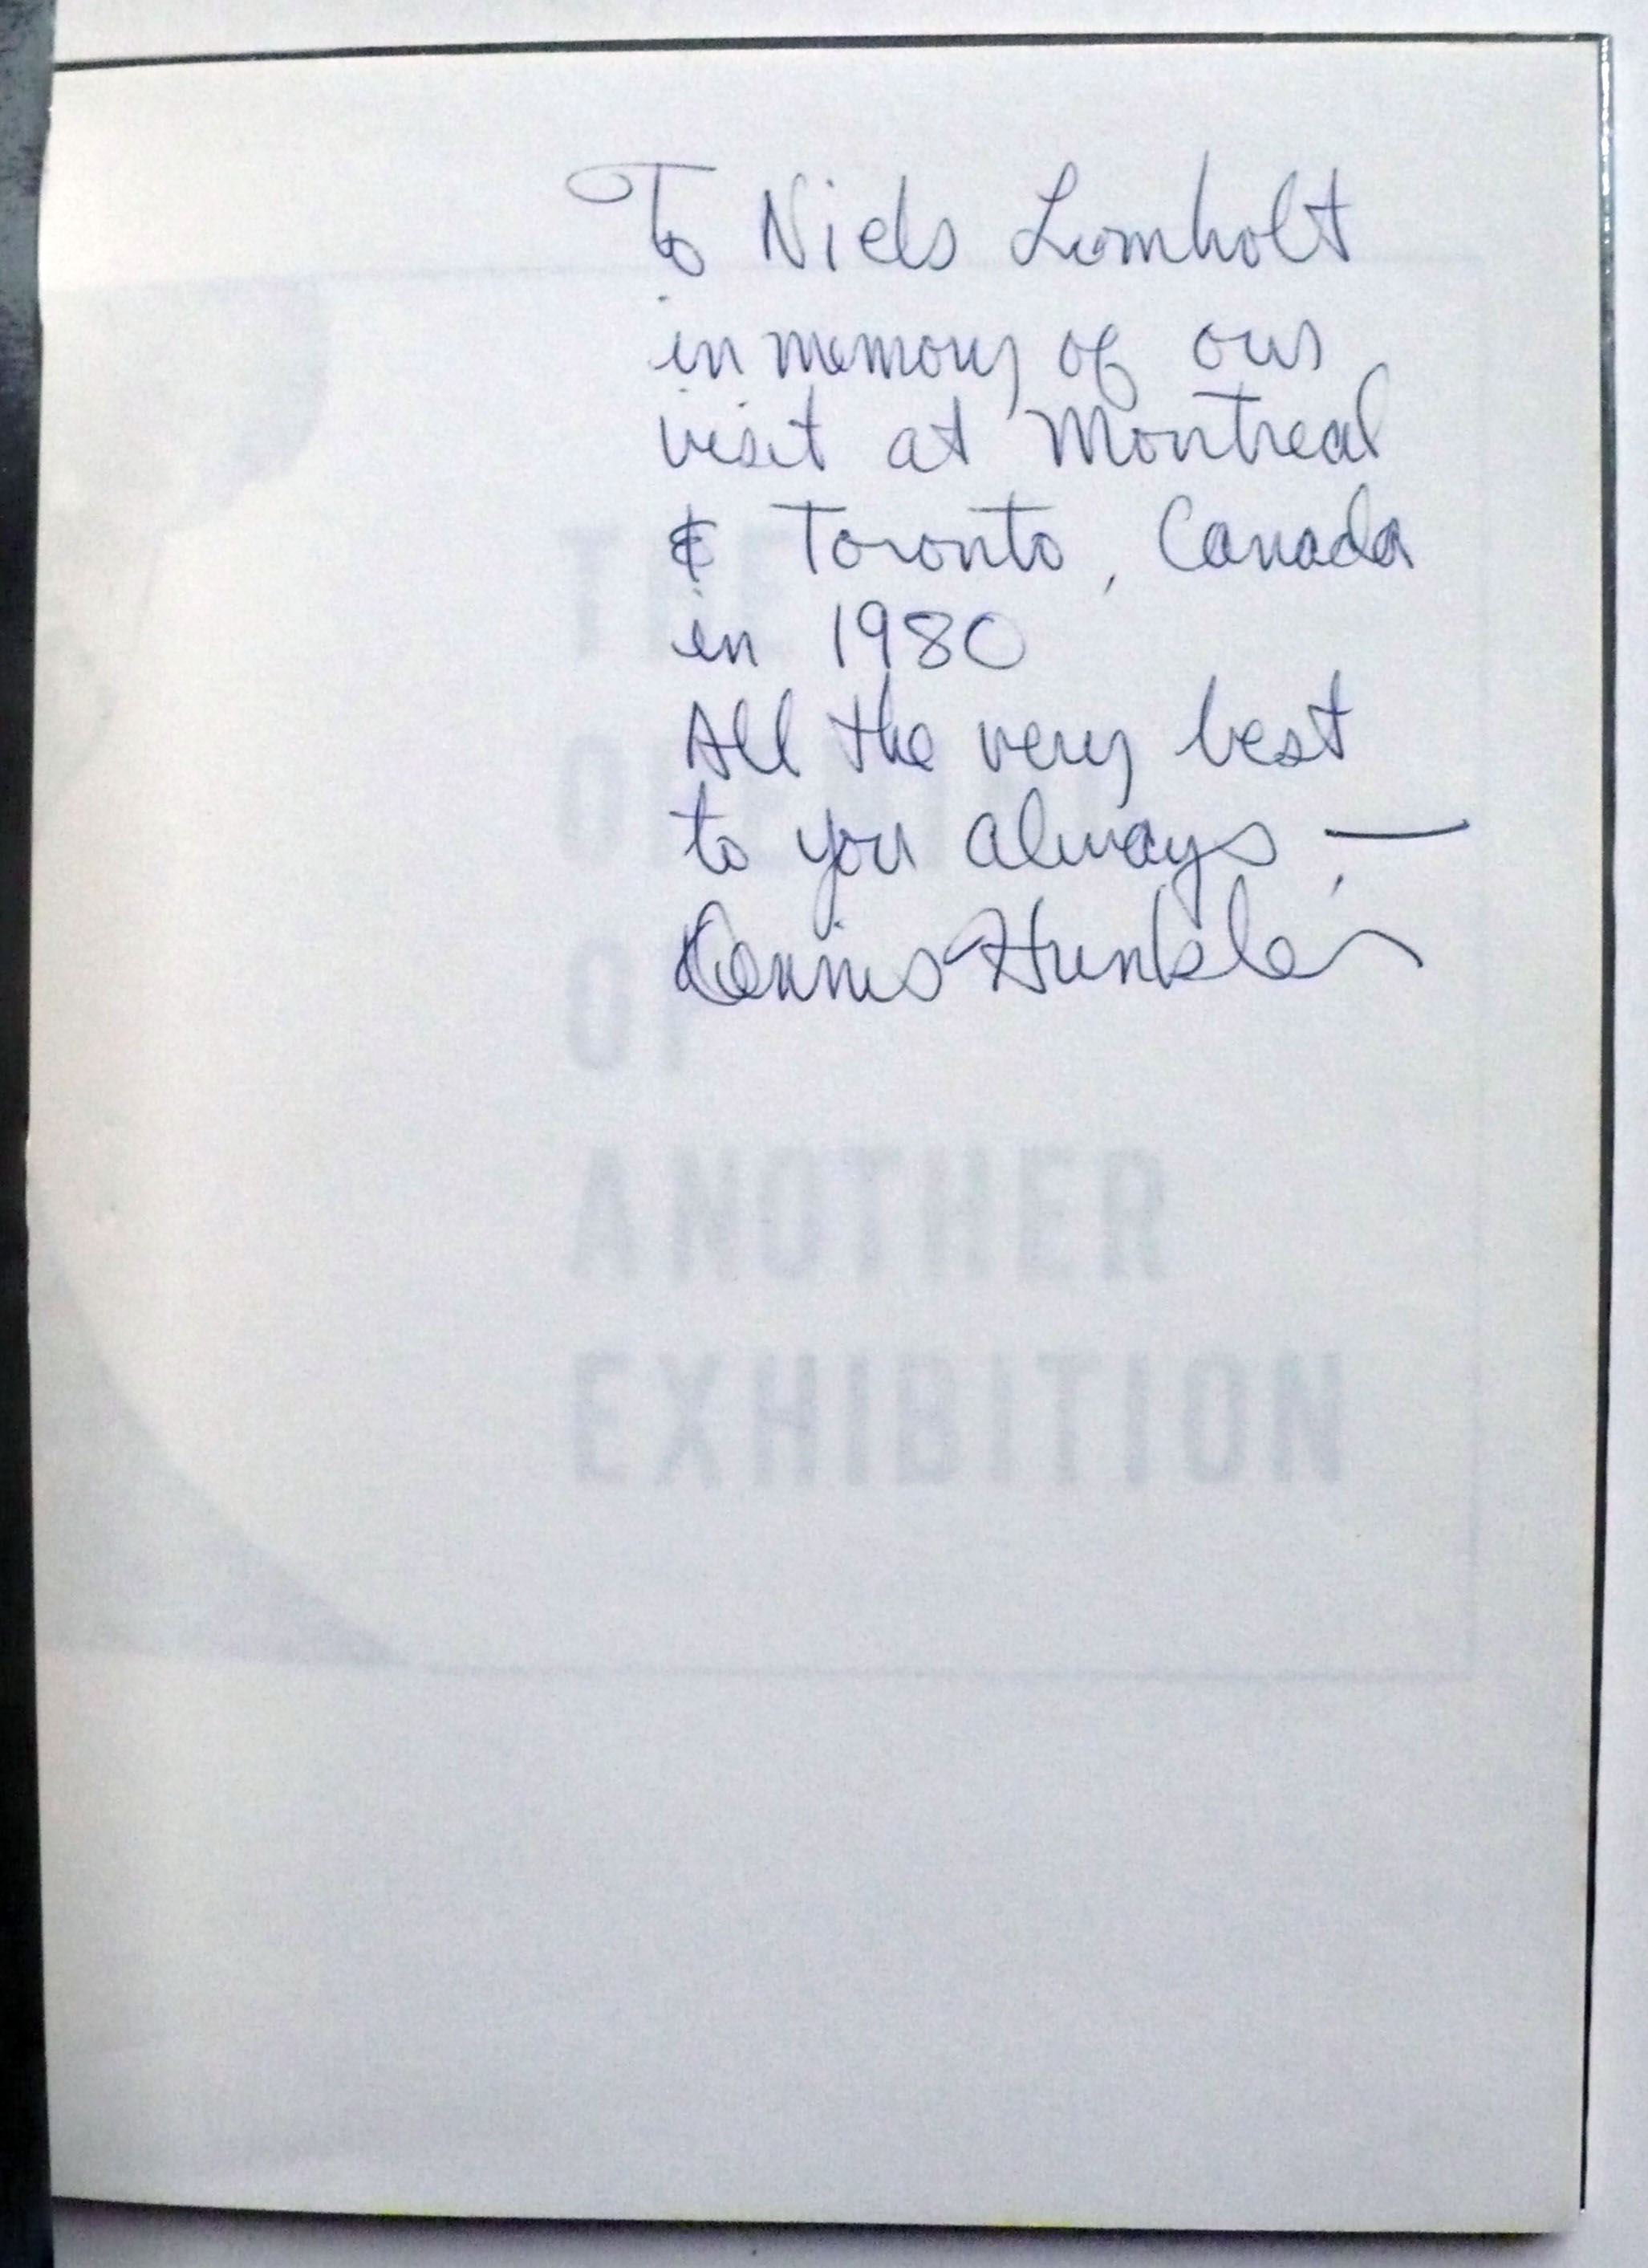 To Niels Lomholt
in memory of our
visit at Montreal
& Toronto, Canada
in 1980
All the very best
to you always, —
Dennis Hunkler
THE
OPENING
OF
ANOTHER
EXHIBITION